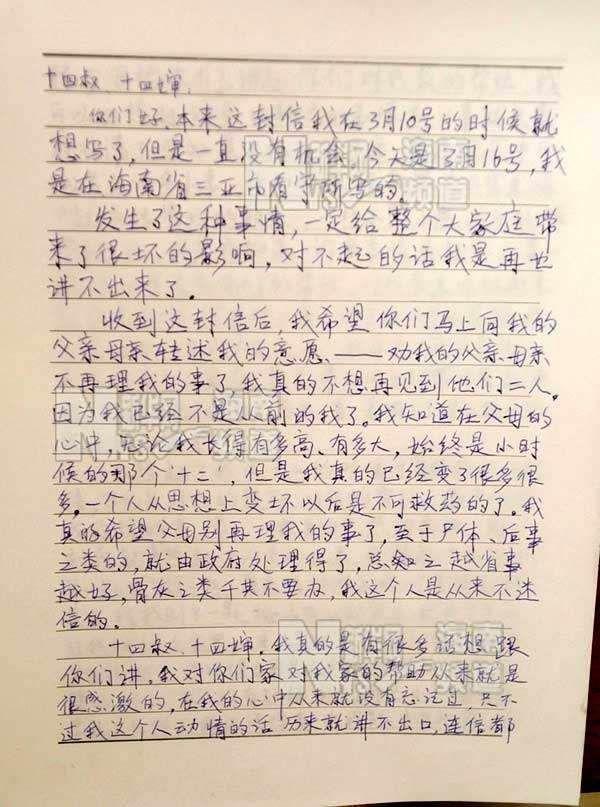 十四叔、十四婶，
你们好，本来这封信我在3月10号的时候就
想写了，但是一直没有机会，今天是3月16号，我
是在海南省三亚市看守所写的。
发生了这种事情，一定给整个大家庭带
来了很坏的影响，对不起的话我是再也
讲不出来了。
收到这封信后，我希望你们马上向我的
父亲母亲转述我的意愿、——劝我的父亲母亲
不再理我的事了，我真的不想再见到他们二人。
因为我已经不是从前的我了。我知道在父母的
心中，无论我长得有多高、有多大，始终是小时
候的那个'十二'，但是我真的已经变了很多很
多。一个人从思想上变坏以后是不可救药的了。我
真的希望父母别再理我的事了，至于尸体、后事
之类的，就由政府处理得了，总知之越省事
越好，骨灰之类千共不要办，我这个人是从来不迷
信的。
十四叔、十四婶，我真的是有很多话想跟
你们讲，我对你们家对我家的帮助从来就是
很感激的，在我的心中从来就没有忘记过，只不
过我这个人动情的话历来就讲不出口，连信都